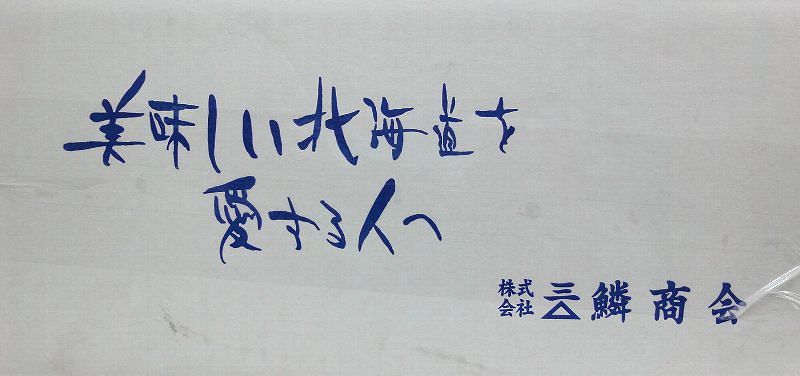 美味しい北海道を
愛する人へ
株式会社 三鱗商会